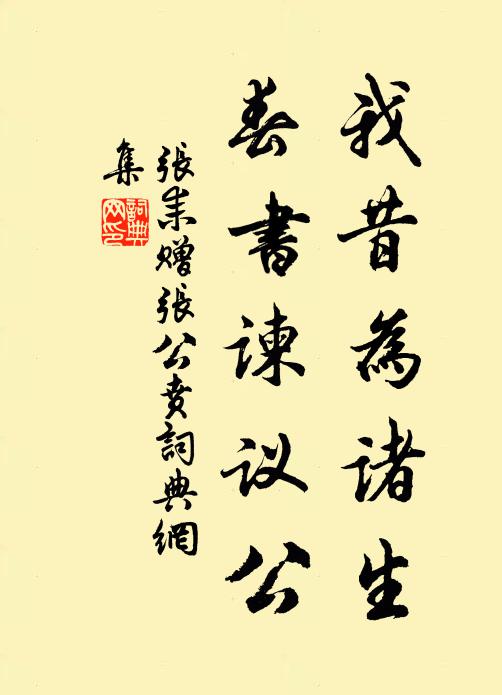 我昔為諸生
奏書諫议公
張耒贈張公賁詞典網
集
詞典网印